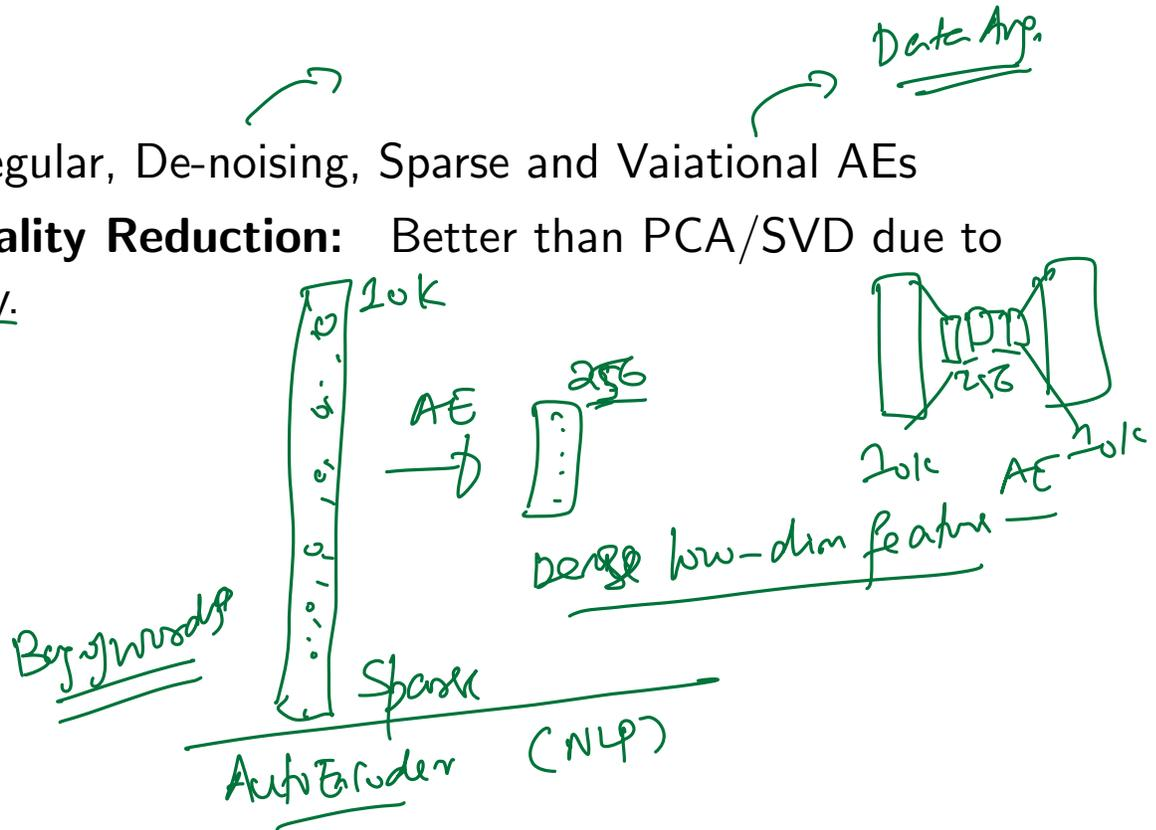 Data Arg.
egular, De-noising, Sparse and Vaiational AEs
ality Reduction: Better than PCA/SVD due to
y.
10K
AE
256
256
10k
AE
10k
Dense low-dim feature
Bag of words
Sparse
AutoEncoder (NLP)